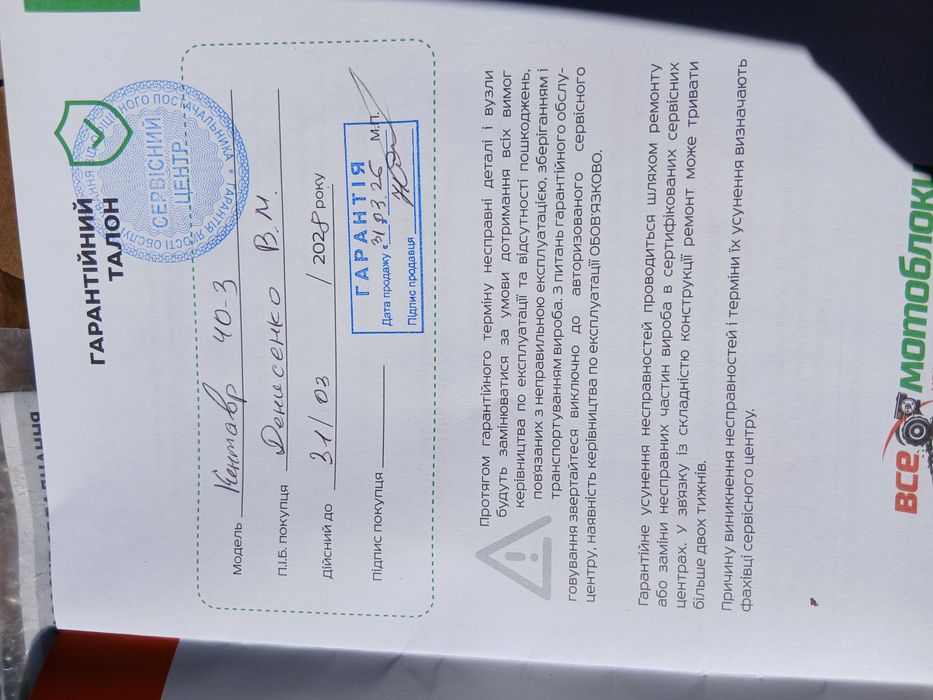 ГАРАНТІЙНИЙ
ТАЛОН
СЕРВІСНИЙ
ЦЕНТР
Модель Кентавр 40-3
П.І.Б. покупця Денисенко В.М.
Дійсний до 31/03 /2028 року
Підпис покупця
М.П.
ГАРАНТІЯ
Дата продажу 31.03.26
Підпис продавця
Протягом гарантійного терміну несправні деталі і вузли
будуть замінюватися за умови дотримання всіх вимог
керівництва по експлуатації та відсутності пошкоджень,
пов'язаних з неправильною експлуатацією, зберіганням і
транспортуванням вироба. З питань гарантійного обслу-
говування звертайтеся виключно до авторизованого сервісного
центру, наявність керівництва по експлуатації ОБОВ'ЯЗКОВО.
Гарантійне усунення несправностей проводиться шляхом ремонту
або заміни несправних частин вироба в сертифікованих сервісних
центрах. У зв'язку із складністю конструкції ремонт може тривати
більше двох тижнів.
Причину виникнення несправностей і терміни їх усунення визначають
фахівці сервісного центру.
ВСЕ МОТОБЛОКИ